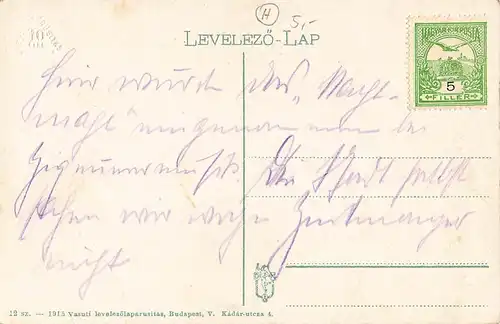 H 5,-
LEVELEZŐ-LAP
MAGYAR KIR. POSTA
5
FILLER
Hier wurde das "Nacht-
mahl" eingenommen bei
Zigeunermusik. Die Stadt selbst
sehen wir wegen Zeitmangel
nicht
12 sz. — 1915 Vasuti levelezőlapárusitás, Budapest, V. Kádár-utcza 4.